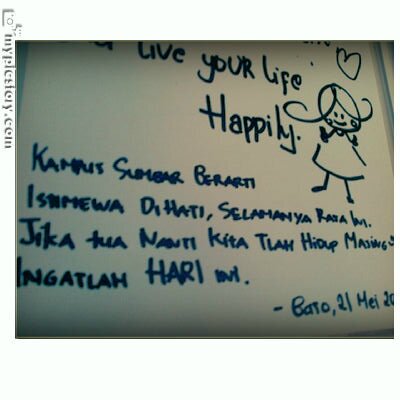 mypicstory.com
LIVE YOUR Life
Happily.
KAMPUS SUMBAR BERARTI
ISTIMEWA DI HATI, SELAMANYA RASA INI.
JIKA TUA NANTI KITA TLAH HIDUP MASING2
INGATLAH HARI INI.
- BATO, 21 Mei 20